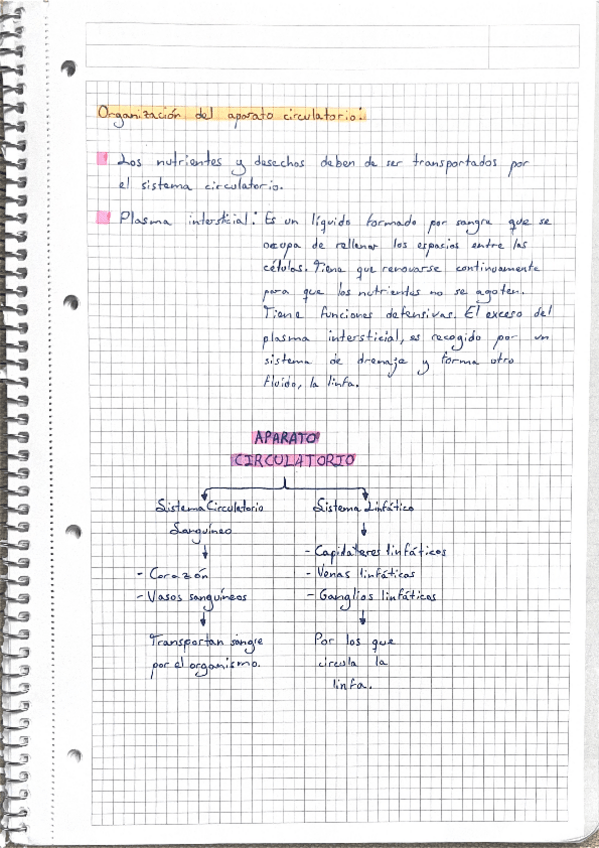 Organización del aparato circulatorio:
Los nutrientes y desechos deben de ser transportados por
el sistema circulatorio.
Plasma intersticial: Es un líquido formado por sangre que se
ocupa de rellenar los espacios entre las
células. Tiene que renovarse continuamente
para que los nutrientes no se agoten.
Tiene funciones defensivas. El exceso del
plasma intersticial, es recogido por un
sistema de drenaje y forma otro
fluido, la linfa.
APARATO
CIRCULATORIO
Sistema Circulatorio Sistema Linfático
Sanguíneo
- Capilateres linfáticos
- Corazón - Venas linfáticas
- Vasos sanguíneos - Ganglios linfáticos
Transportan sangre Por los que
por el organismo. circula la
linfa.